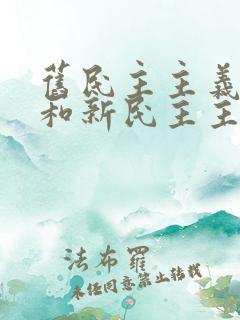 舊民主主義
和新民主主
法布羅
未任同意禁止轉載